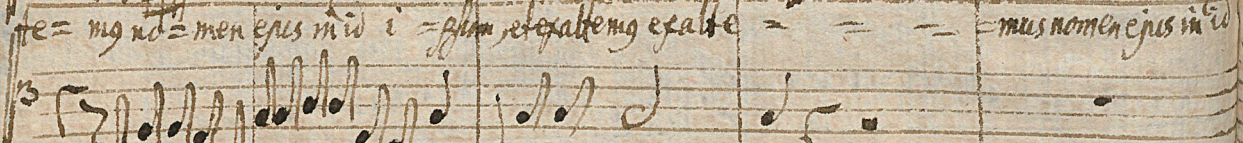 te= mus no=men ejus in id i =psum, et exaltemus exalte = = = =mus nomen ejus in id